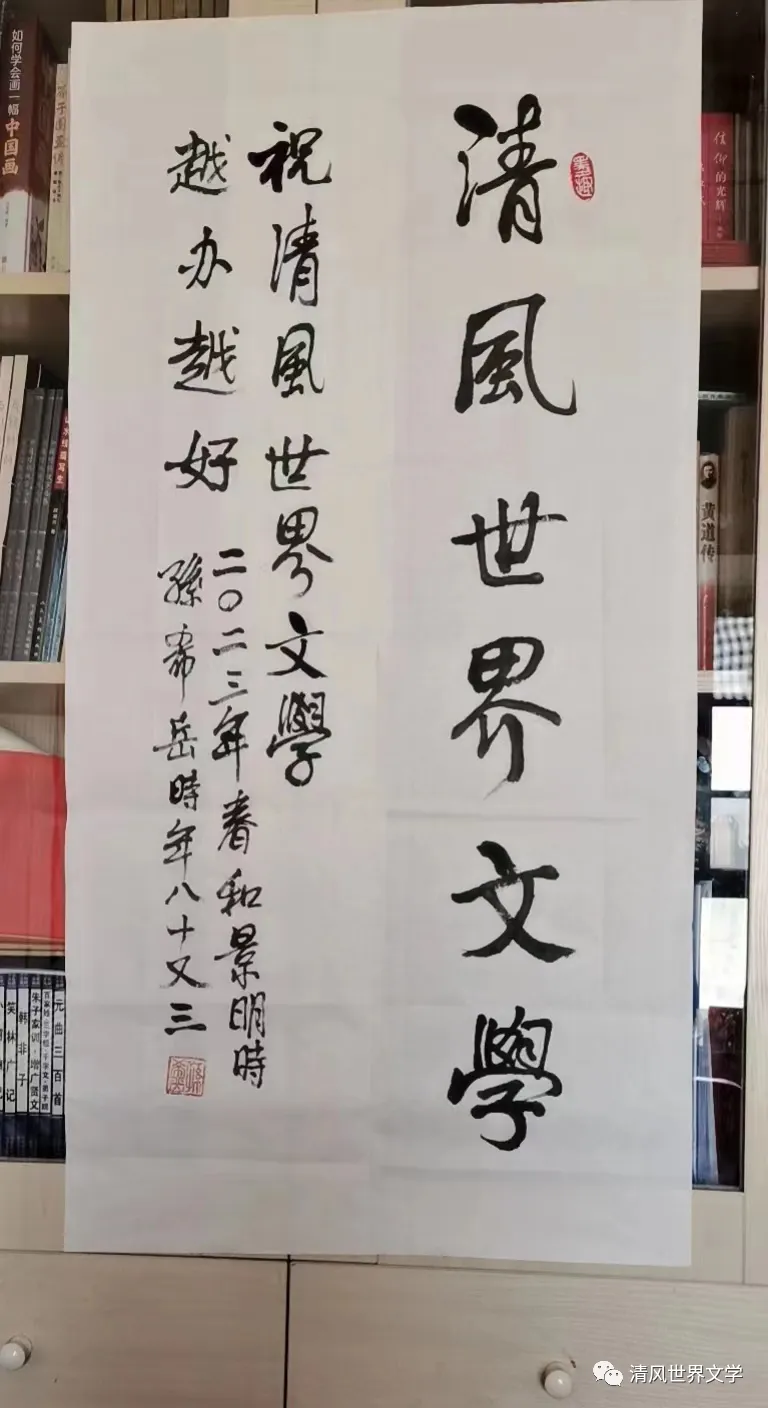 清風世界文學
祝清風世界文學
越办越好
二〇二三年春和景明時
孫希岳時年八十又三
如何学会画一幅中国画
信仰的光辉
黄道传
元曲三百首
朱子家训·增广贤文
韩非子
笑林广记
清风世界文学